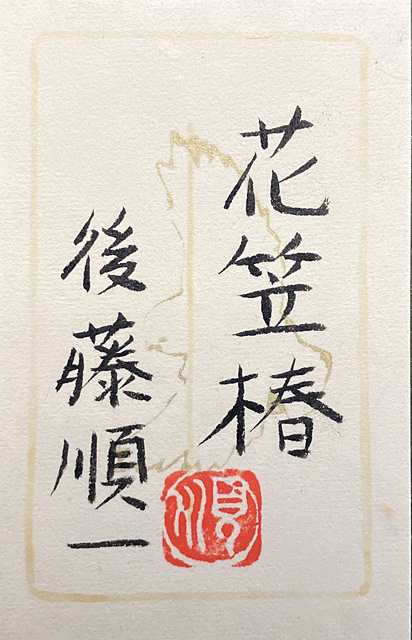 花笠椿
後藤順一
順